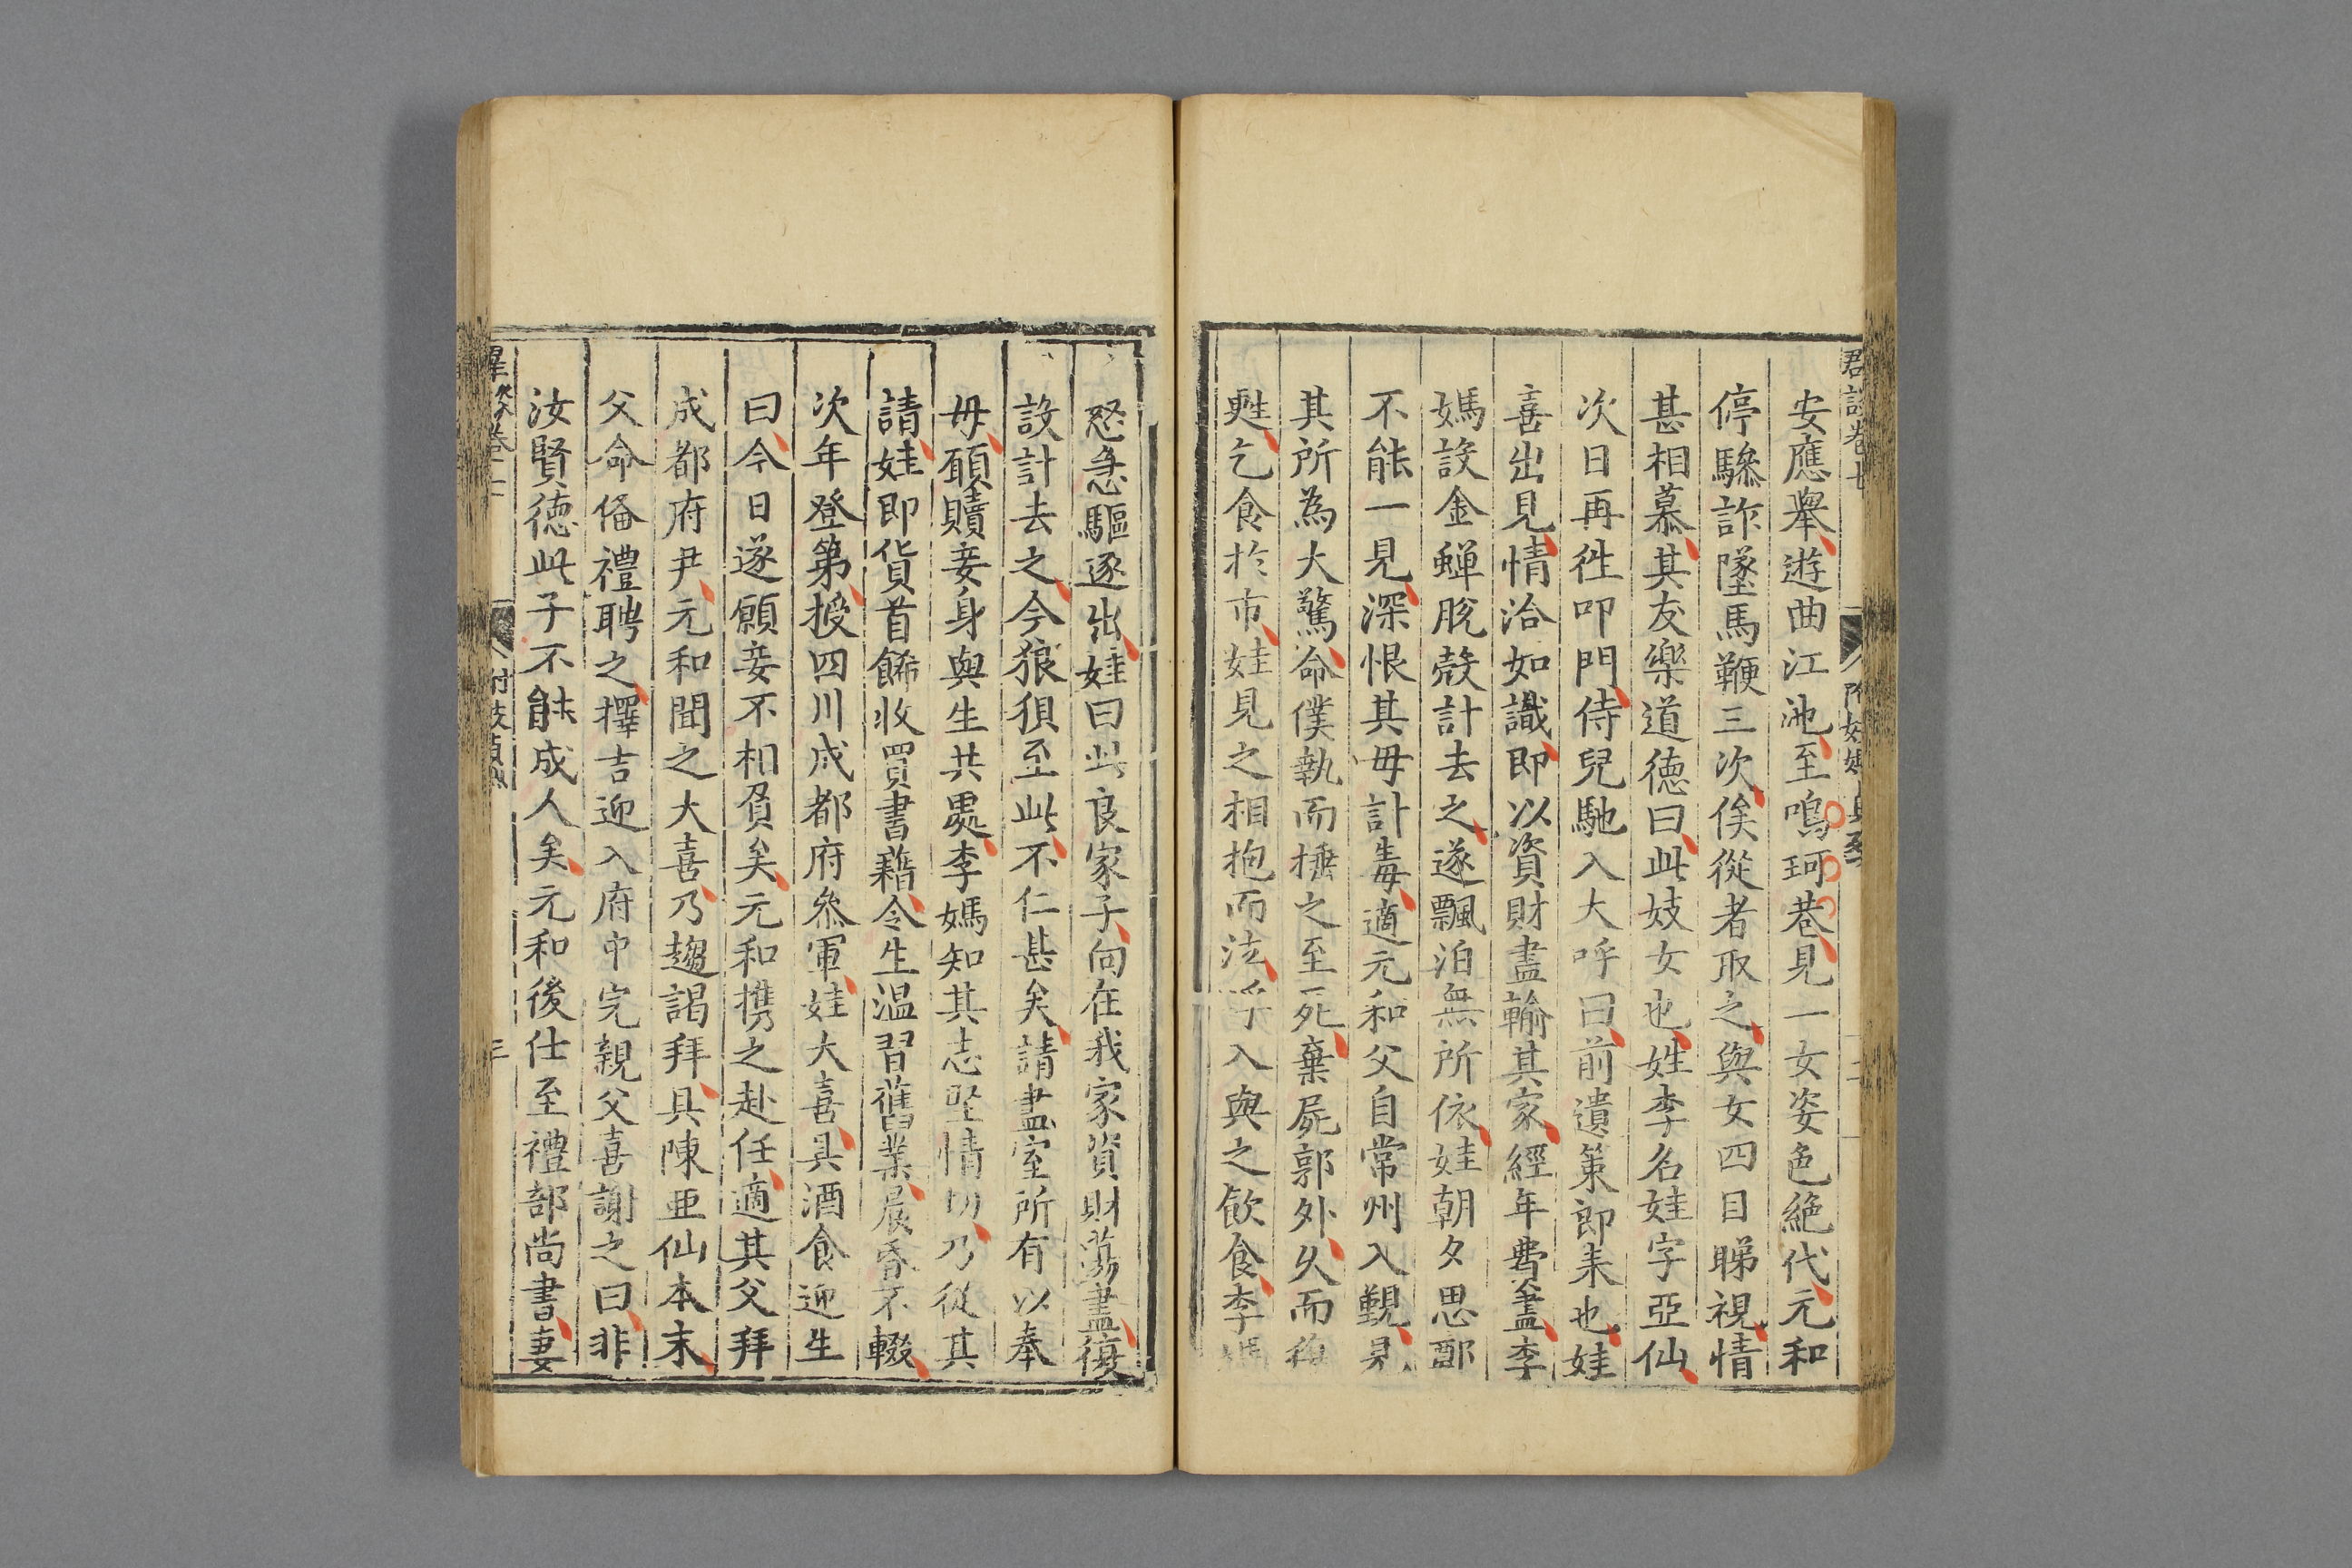 安應舉遊曲江池至鳴珂巷見一女姿色絶代元和
停驂詐墜馬鞭三次俟從者取之與女四目睇視情
甚相慕其友樂道徳曰此妓女也姓李名娃字亞仙
次日再徃叩門侍兒馳入大呼曰前遺策郎耒也娃
喜出見情洽如識即以資財盡輸其家經年費盡李
媽設金蟬脫殻計去之遂飄泊無所依娃朝夕思鄭
不能一見深恨其母計毒適元和父自常州入覲見
其所為大驚命僕執而捶之至死棄屍郭外久而復
甦乞食於市娃見之相抱而泣呼入與之飲食李媽
怒急驅逐出娃曰此良家子向在我家資財蕩盡復
設計去之今狼狽至此不仁甚矣請盡室所有以奉
母願贖妾身與生共處李媽知其志堅情切乃從其
請娃即貨首餙收買書藉令生温習舊業晨昏不輟
次年登第授四川成都府叅軍娃大喜具酒食迎生
曰今日遂願妾不相負矣元和携之赴任適其父拜
成都府尹元和聞之大喜乃趨謁拜具陳亜仙本末
父命俻禮聘之擇吉迎入府中完親父喜謝之曰非
汝賢徳此子不能成人矣元和後仕至禮部尚書妻